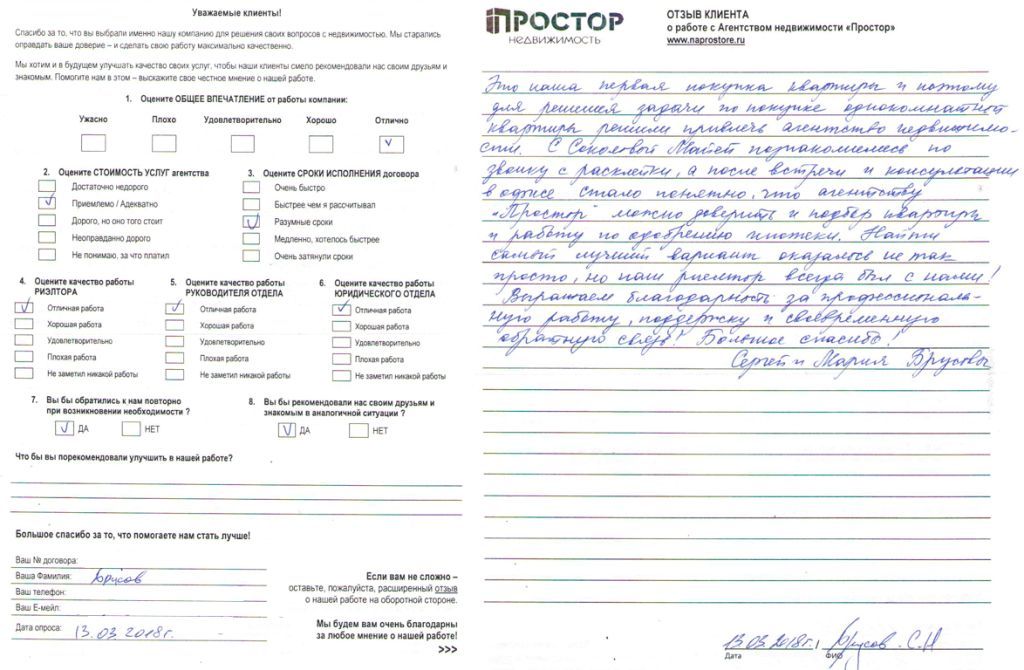 Уважаемые клиенты!
Спасибо за то, что вы выбрали именно нашу компанию для решения своих вопросов с недвижимостью. Мы старались
оправдать ваше доверие – и сделать свою работу максимально качественно.
Мы хотим и в будущем улучшать качество своих услуг, чтобы наши клиенты смело рекомендовали нас своим друзьям и
знакомым. Помогите нам в этом – выскажите свое честное мнение о нашей работе.
1. Оцените ОБЩЕЕ ВПЕЧАТЛЕНИЕ от работы компании:
Ужасно Плохо Удовлетворительно Хорошо Отлично
2. Оцените СТОИМОСТЬ УСЛУГ агентства
Достаточно недорого
Приемлемо / Адекватно
Дорого, но оно того стоит
Неоправданно дорого
Не понимаю, за что платил
3. Оцените СРОКИ ИСПОЛНЕНИЯ договора
Очень быстро
Быстрее чем я рассчитывал
Разумные сроки
Медленно, хотелось быстрее
Очень затянули сроки
4. Оцените качество работы
РИЭЛТОРА
Отличная работа
Хорошая работа
Удовлетворительно
Плохая работа
Не заметил никакой работы
5. Оцените качество работы
РУКОВОДИТЕЛЯ ОТДЕЛА
Отличная работа
Хорошая работа
Удовлетворительно
Плохая работа
Не заметил никакой работы
6. Оцените качество работы
ЮРИДИЧЕСКОГО ОТДЕЛА
Отличная работа
Хорошая работа
Удовлетворительно
Плохая работа
Не заметил никакой работы
7. Вы бы обратились к нам повторно
при возникновении необходимости ?
ДА НЕТ
8. Вы бы рекомендовали нас своим друзьям и
знакомым в аналогичной ситуации ?
ДА НЕТ
Что бы вы порекомендовали улучшить в нашей работе?
Большое спасибо за то, что помогаете нам стать лучше!
Ваш № договора:
Ваша Фамилия: Брусов
Ваш телефон:
Ваш E-мейл:
Дата опроса: 13.03.2018г.
Если вам не сложно –
оставьте, пожалуйста, расширенный отзыв
о нашей работе на оборотной стороне.
Мы будем вам очень благодарны
за любое мнение о нашей работе!
>>>
ПРОСТОР
НЕДВИЖИМОСТЬ
ОТЗЫВ КЛИЕНТА
о работе с Агентством недвижимости «Простор»
www.naprostore.ru
Это наша первая покупка квартиры и поэтому
для решения задачи по покупке однокомнатной
квартиры решили привлечь агентство недвижимо-
сти. С Соколовой Майей познакомились по
звонку с расклейки, а после встречи и консультации
в офисе стало понятно, что агентству
"Простор" можно доверить и подбор квартиры
и работу по одобрению ипотеки. Найти
самый лучший вариант оказалось не так
просто, но наш риелтор всегда был с нами!
Выражаем благодарность за профессиональ-
ную работу, поддержку и своевременную
обратную связь! Большое спасибо!
Сергей и Мария Брусовы
13.03.2018г. Брусов С.Н
Дата ФИО